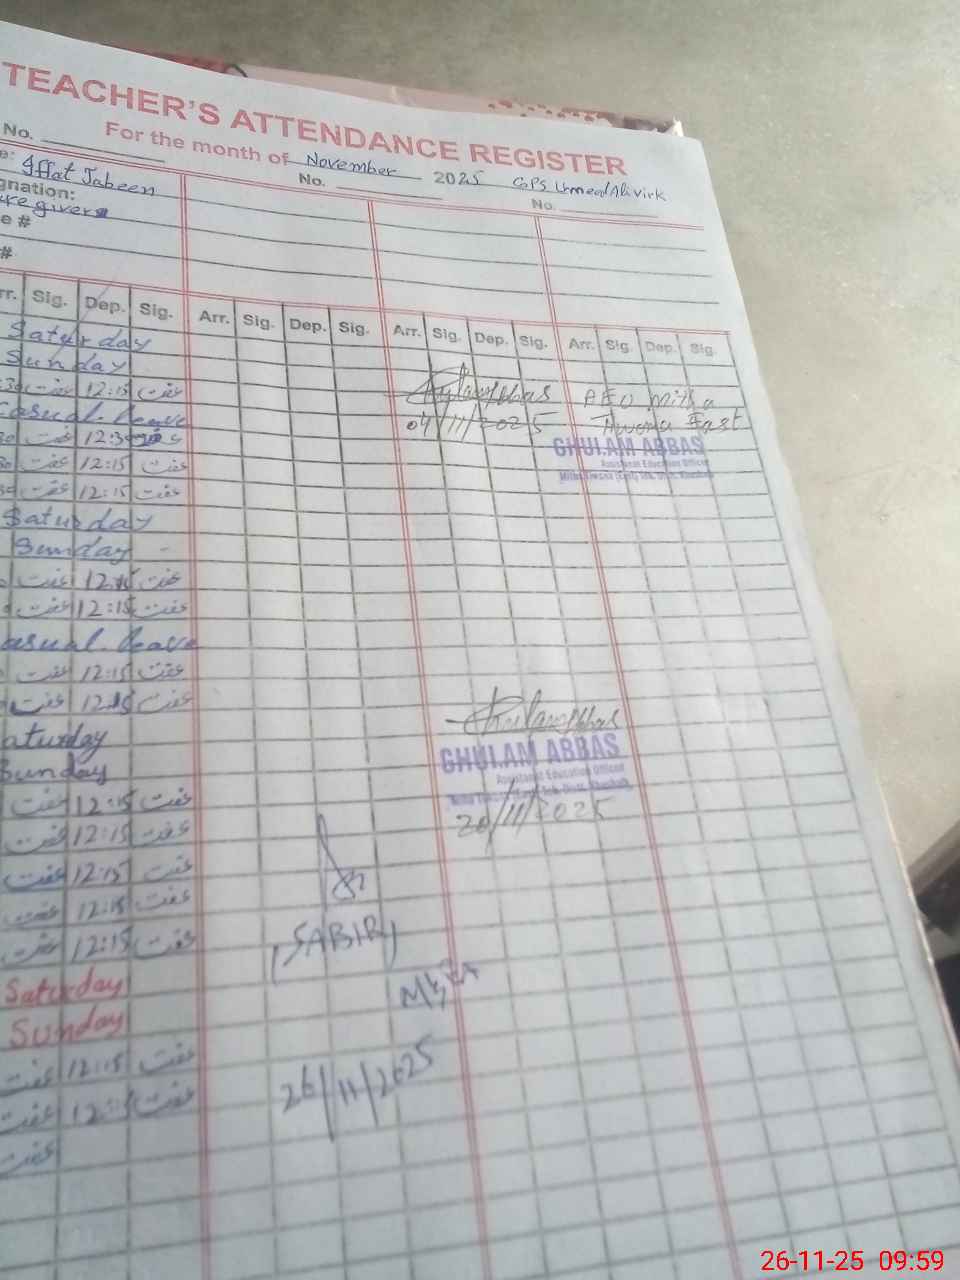 TEACHER'S ATTENDANCE REGISTER
For the month of November 2025 GPS Umeed Ali virk
No. No. No.
Iffat Jabeen
gnation:
caregiver
e #
#
rr. Sig. Dep. Sig. Arr. Sig. Dep. Sig. Arr. Sig. Dep. Sig. Arr. Sig. Dep. Sig.
Saturday
Sunday
30 عفت 12:15 عفت
Casual leave
30 عفت 12:30 عفت
30 عفت 12:15 عفت
30 عفت 12:15 عفت
Saturday
Sunday
عفت 12:15 عفت
عفت 12:15 عفت
asual leave
عفت 12:15 عفت
عفت 12:15 عفت
aturday
Sunday
عفت 12:15 عفت
عفت 12:15 عفت
عفت 12:15 عفت
عفت 12:15 عفت
عفت 12:15 عفت
Saturday
Sunday
عفت 12:15 عفت
عفت 12:15 عفت
عفت
Ghulam Abbas AEO Mitha
04/11/2025 Tiwana East
GHULAM ABBAS
Assistant Education Officer
Mitha Tiwana (East) Teh. Distt. Khushab
Ghulam Abbas
GHULAM ABBAS
Assistant Education Officer
Mitha Tiwana (East) Teh. Distt. Khushab
20/11/2025
(SABIR)
MEA
26/11/2025
26-11-25 09:59